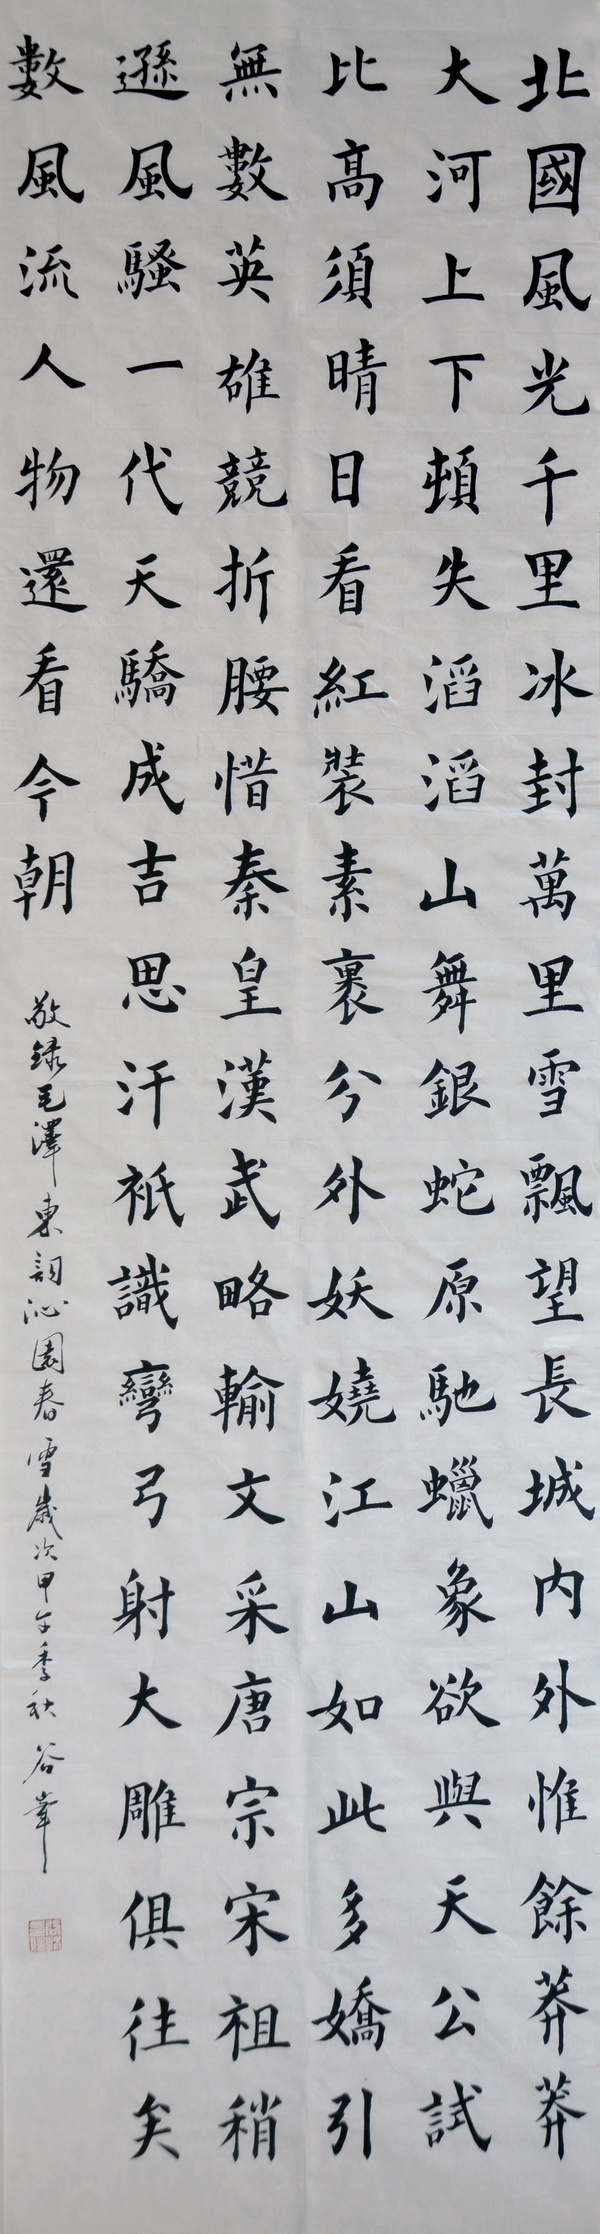 北國風光千里冰封萬里雪飄望長城内外惟餘莽莽
大河上下頓失滔滔山舞銀蛇原馳蠟象欲與天公試
比高須晴日看紅裝素裹兮外妖嬈江山如此多嬌引
無數英雄競折腰惜秦皇漢武略輸文采唐宗宋祖稍
遜風騷一代天驕成吉思汗祇識彎弓射大雕俱往矣
數風流人物還看今朝
敬録毛澤東詞沁園春雪歲次甲午季秋谷峯